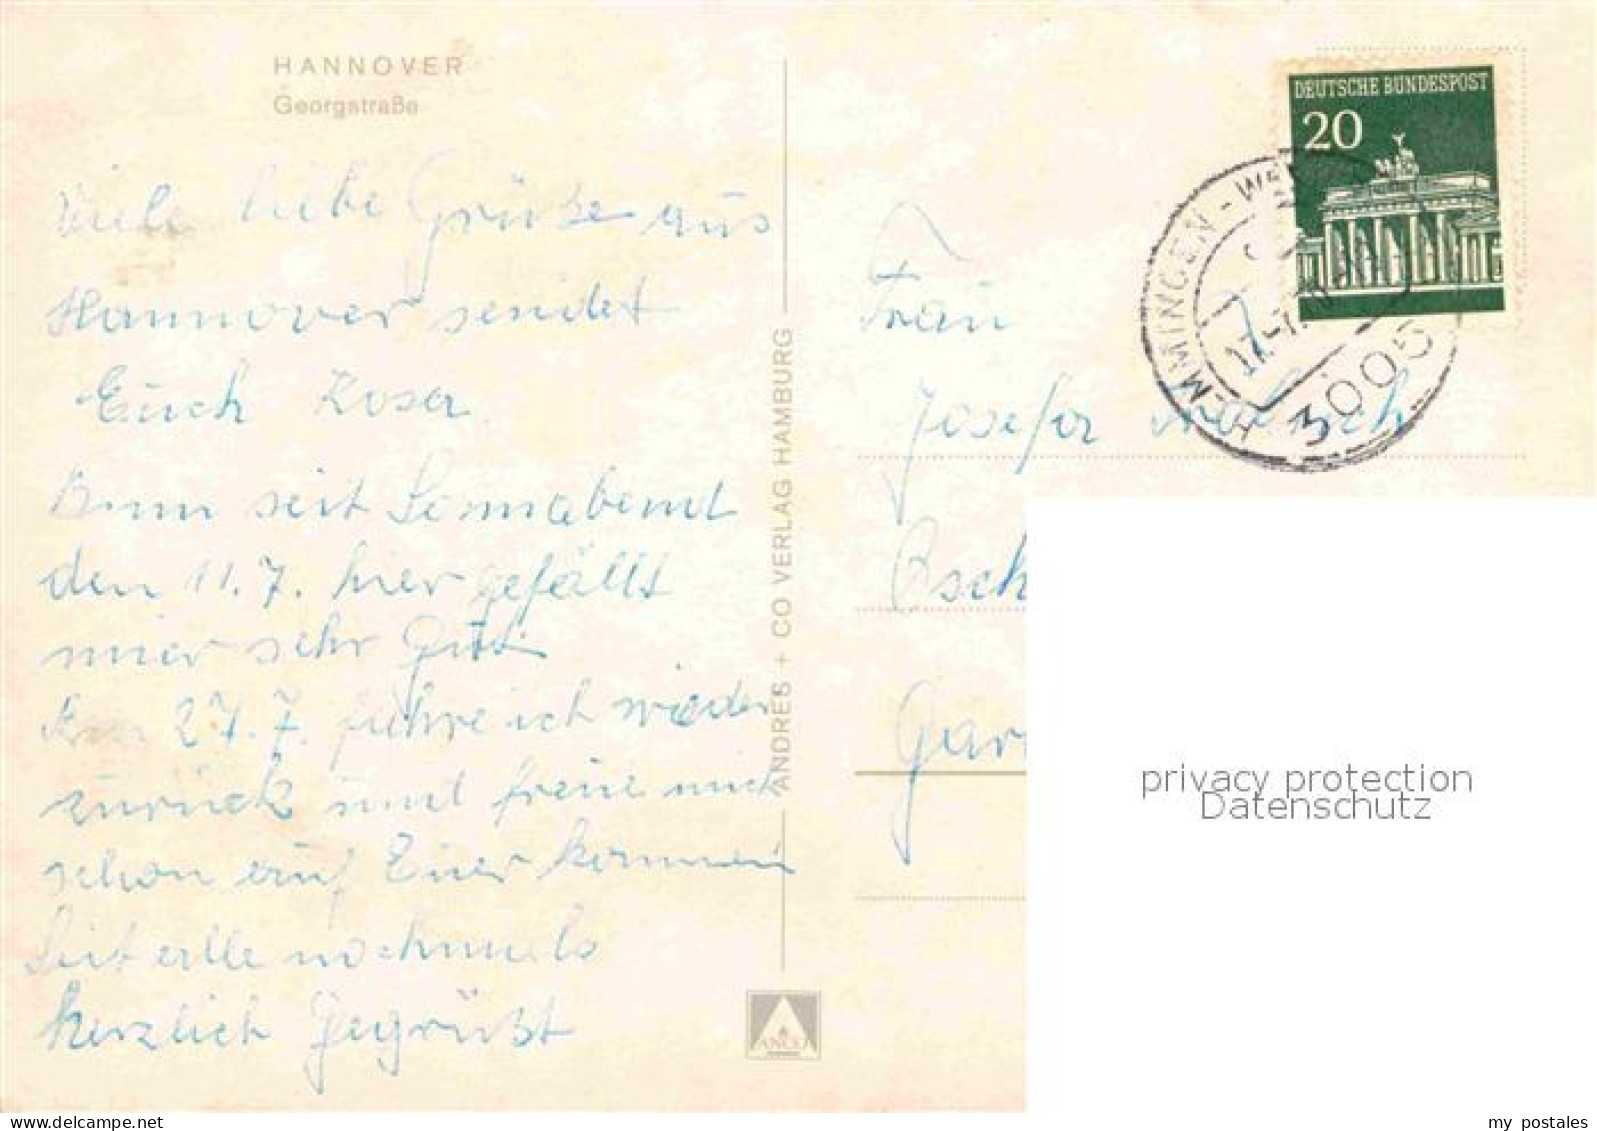 HANNOVER
Georgstraße
Viele liebe Grüße aus
Hannover sendet
Euch Rosa
Binn seit Sonnabend
den 11.7. hier gefällt
mier sehr Gut.
Am 27.7. fahre ich wieder
zurück und freue mich
schon auf Euer kommen
Seit alle nochmals
herzlich Gegrüßt
ANDRES + CO VERLAG HAMBURG
ANCO
DEUTSCHE BUNDESPOST
20
HEMMINGEN-WE
17.-7.
3005
Frau
Josefa
Garm
privacy protection
Datenschutz
my postales